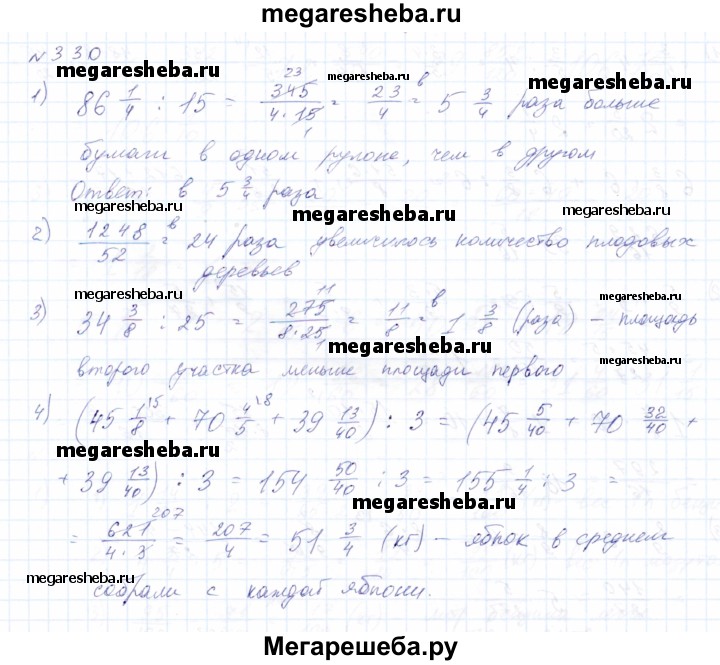 megaresheba.ru
№ 330
megaresheba.ru
1) 86 1/4 : 15 = 345/(4·15) = 23/4 = в 5 3/4 раза больше
23
1
megaresheba.ru
бумаги в одном рулоне, чем в другом
Ответ: в 5 3/4 раза
megaresheba.ru
megaresheba.ru
2) 1248/52 = в 24 раза увеличилось количество плодовых
деревьев
megaresheba.ru
megaresheba.ru
3) 34 3/8 : 25 = 275/(8·25) = 11/8 = в 1 3/8 (раза) – площадь
11
1
megaresheba.ru
второго участка меньше площади первого
megaresheba.ru
4) (45 1/8 \5 + 70 4/5 \8 + 39 13/40) : 3 = (45 5/40 + 70 32/40 +
megaresheba.ru
+ 39 13/40) : 3 = 154 50/40 : 3 = 155 1/4 : 3 =
megaresheba.ru
207
= 621/(4·3) = 207/4 = 51 3/4 (кг) – яблок в среднем
megaresheba.ru
собрали с каждой яблони.
megaresheba.ru
Мегарешеба.ру